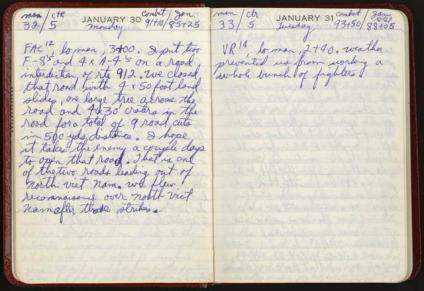 man / ctr JANUARY 30 combat / Jan.
32 / 5 Monday 91+10 / 85+25
FAC 12, lo man, 3+00. I put two
F-8's and 4 x A-4's on a road
interdiction of rte 912. We closed
that road with 4 x 50 foot land
slides, one large tree across the
road and 4x30' craters in the
road for a total of 9 road cuts
in 500 yds, distance. I hope
it takes the enemy a couple days
to open that road. That is one
of the two roads leading out of
North Viet Nam. We flew
reconnaissance over North Viet
Nam after those strikes.
man / ctr JANUARY 31 combat / Jan
33 / 5 Tuesday 93+50 / 88+05
VR 16, lo man, 2+40. Weather
prevented us from working a
whole bunch of fighters.